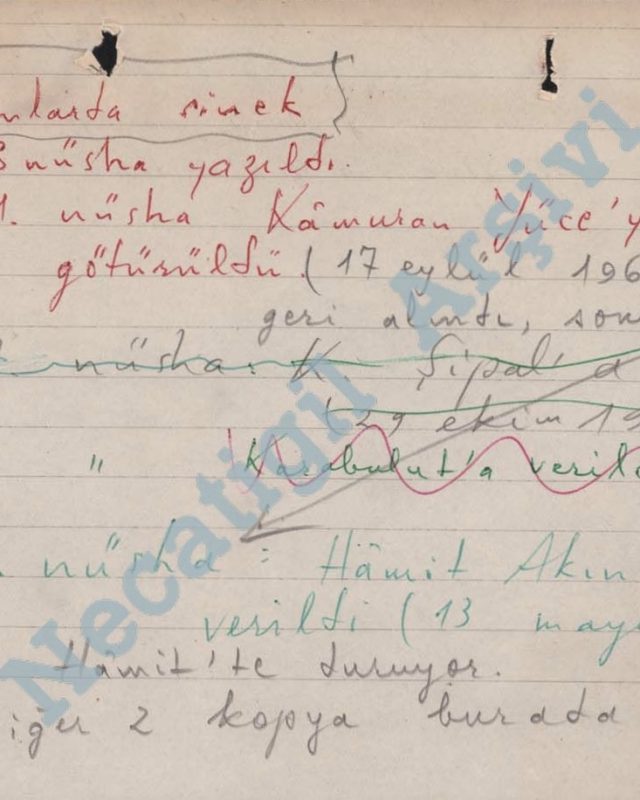 nlarda sinek
3 nüsha yazıldı.
1. nüsha Kâmuran Yüce'y
götürüldü (17 eylül 196
geri alındı, son
nüsha: K. Şipal'a
(29 ekim 19
" Karabulut'a veril
. nüsha : Hâmit Akın
verildi (13 may
Hâmit'te duruyor.
iğer 2 kopya burada
Necatigil Arşivi